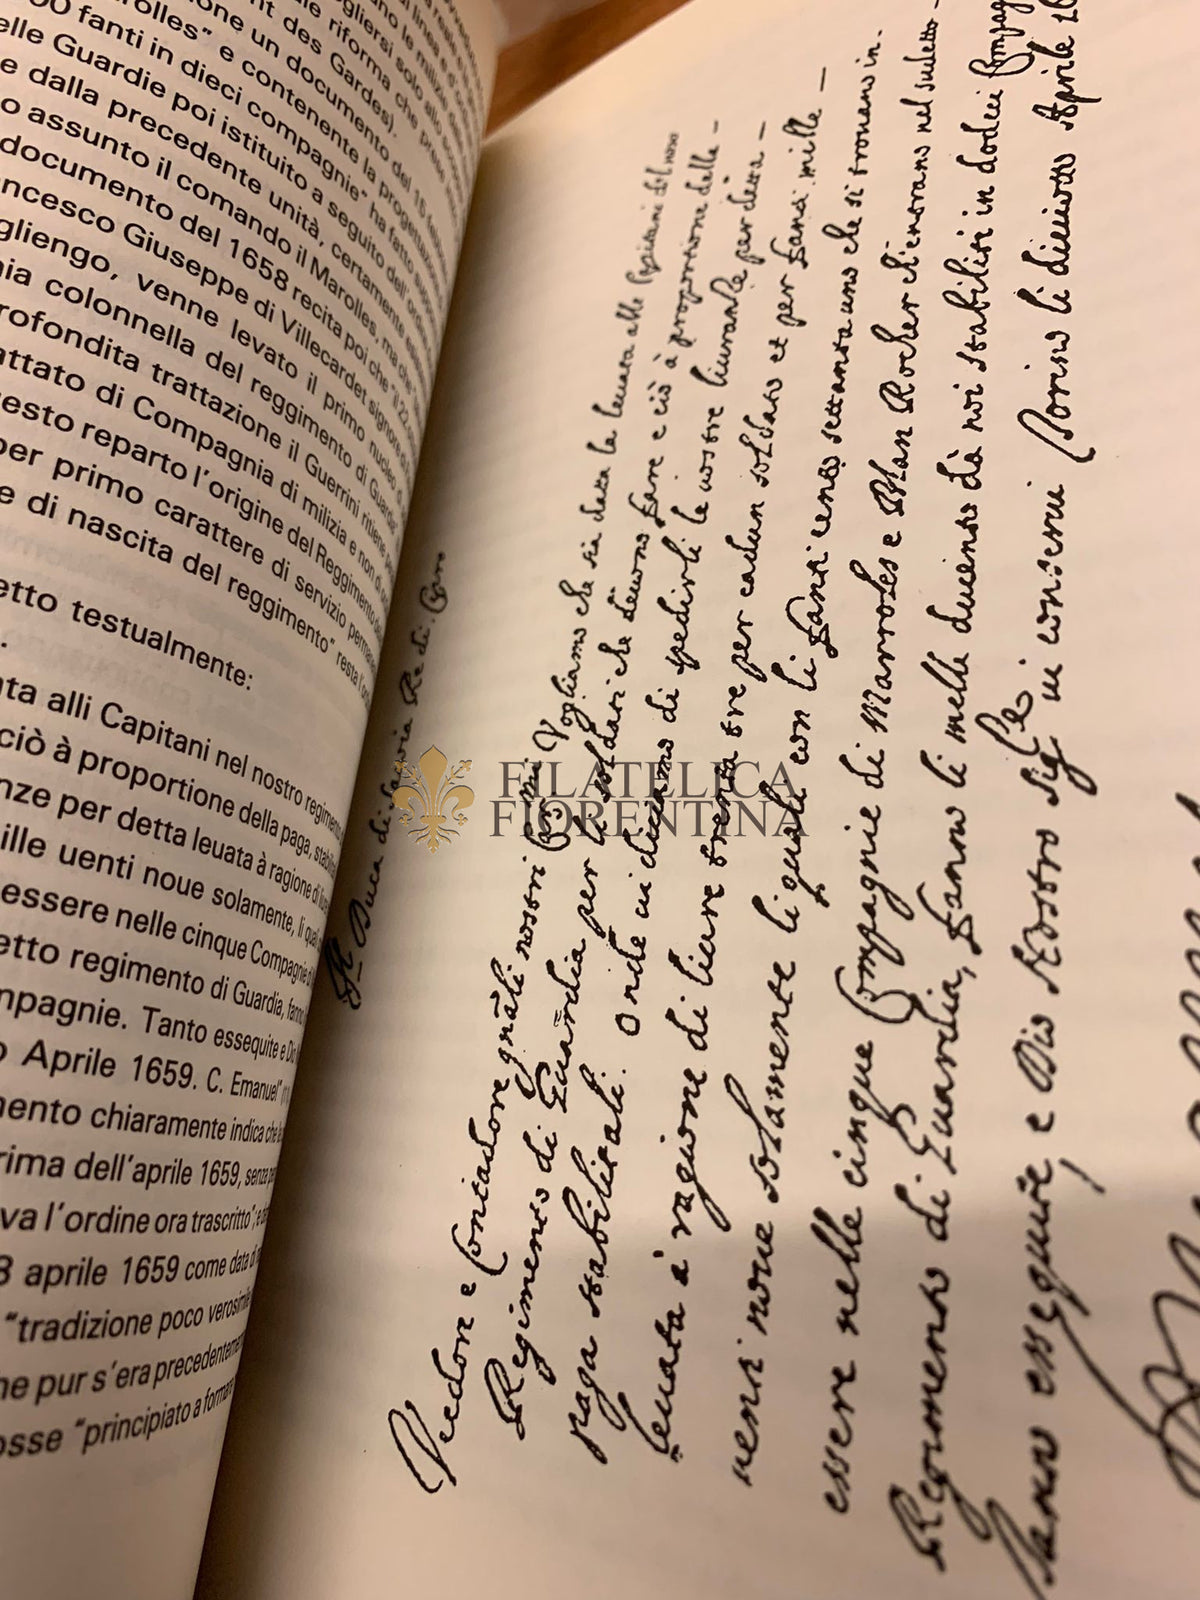 nt des Gardes).
rolles" e contenente la progettazione
00 fanti in dieci compagnie" ha fatto
elle Guardie poi istituito a seguito dell'
e dalla precedente unità, certamente
o assunto il comando il Marolles, ma che
documento del 1658 recita poi che "il 22
ncesco Giuseppe di Villecardet signore di
gliengo, venne levato il primo nucleo
nia colonnella del reggimento di Guardia"
rofondita trattazione il Guerrini ritiene
attato di Compagnia di milizia e non di
uesto reparto l'origine del Reggimento
per primo carattere di servizio
e di nascita del reggimento" resta
etto testualmente:
ata alli Capitani nel nostro regimento
ciò à proportione della paga,
nze per detta leuata à ragione di
ille uenti noue solamente, li
essere nelle cinque Compagnie
etto regimento di Guardia,
mpagnie. Tanto essequite e
o Aprile 1659. C. Emanuel"
mento chiaramente indica che
rima dell'aprile 1659, senza
va l'ordine ora trascritto";
8 aprile 1659 come data
"tradizione poco verosimile
ne pur s'era precedentemen
osse "principiato a formar
Il Duca di Savoia Re di Cipro
Veedore e Contadore gnāli nostri Car.mi Vogliamo che sia data la leuata alle Capitani del nro
Regimento di Guardia per li soldati che deuono fare e ciò à proportione della
paga stabilitali. Onde ui diciamo di spedirli le nostre liuranze per detta
leuata à ragione di liure trenta tre per cadun soldato et per fanti mille
uenti noue solamente li quali con li fanti cento settantauno che si trouano in
essere nelle cinque Compagnie di Marroles e Blan Rocher ch'entrano nel sudetto
Regimento di Guardia, fanno li mille ducento dà noi stabiliti in dodici Compag
Tanto essequite, e Dio Nostro Sig.re ui conserui Torino li dicinoue Aprile 16
FILATELICA
FIORENTINA